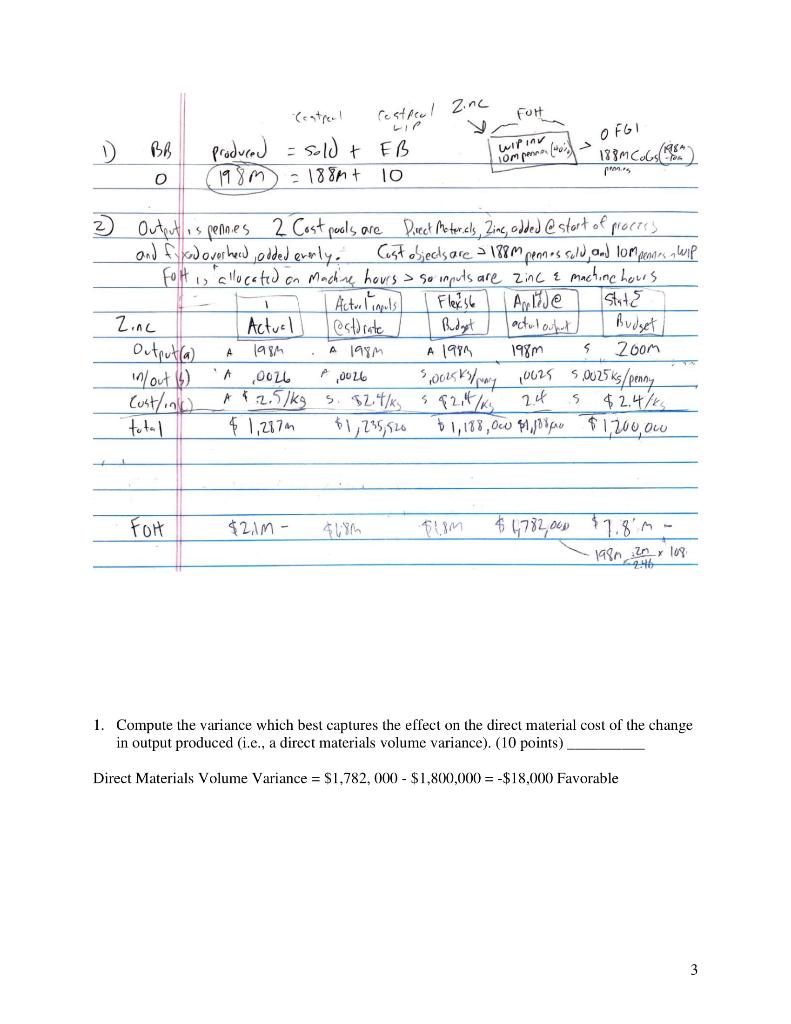 Costpool Costpool Zinc FOH
WIP
0 FGI
1) BB Produced = Sold + EB WIP inv → 188M CoGS
10M pennies pennies
0 198M = 188M + 10
2) Output is pennies 2 Cost pools are Direct Materials, Zinc, added @ start of process
and fixed overhead, added evenly. Cost objects are > 188M pennies sold, and 10M pennies WIP
FOH is allocated on Machine hours > so inputs are zinc & machine hours
1 Actual inputs Flexible Applied @ Static
Zinc Actual @ std rate Budget actual output Budget
Output (a) A 198M . A 198M A 198M 198M S 200M
in/out (b) A .0026 A .0026 S .0025 Kg/penny .0025 S .0025 Kg/penny
Cost/in(c) A $ 2.5/Kg S. $2.4/Kg S $2.4/Kg 2.4 S $2.4/Kg
total $ 1,287m $1,235,520 $1,188,000 $1,188,000 $1,200,000
FOH $2.1M - $1.8M $1.8M $ 1,782,000 $ 1.8 M -
198M
1. Compute the variance which best captures the effect on the direct material cost of the change
in output produced (i.e., a direct materials volume variance). (10 points) __________
Direct Materials Volume Variance = $1,782, 000 - $1,800,000 = -$18,000 Favorable
3